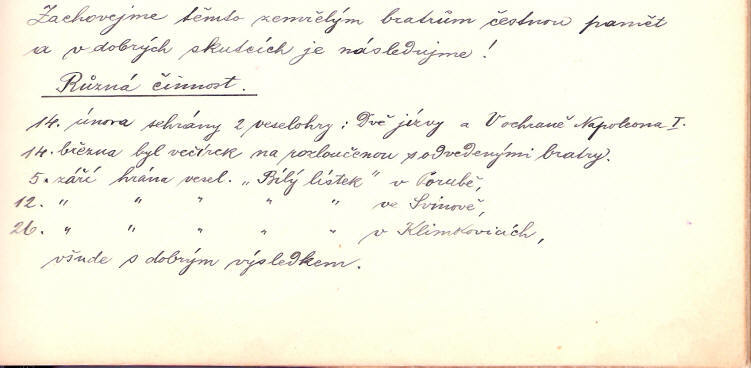 Zachovejme těmto zemřelým bratrům čestnou pamět
a v dobrých skutcích je následujme!
Různá činnost.
14. února sehrány 2 veselohry: Dvě jizvy a V ochraně Napoleona I.
14. března byl večírek na rozloučenou s odvedenými bratry.
5. září hrána vesel. „Bílý lístek" v Porubě,
12. " " " " " ve Svinově,
26. " " " " " v Klimkovicích,
všude s dobrým výsledkem.